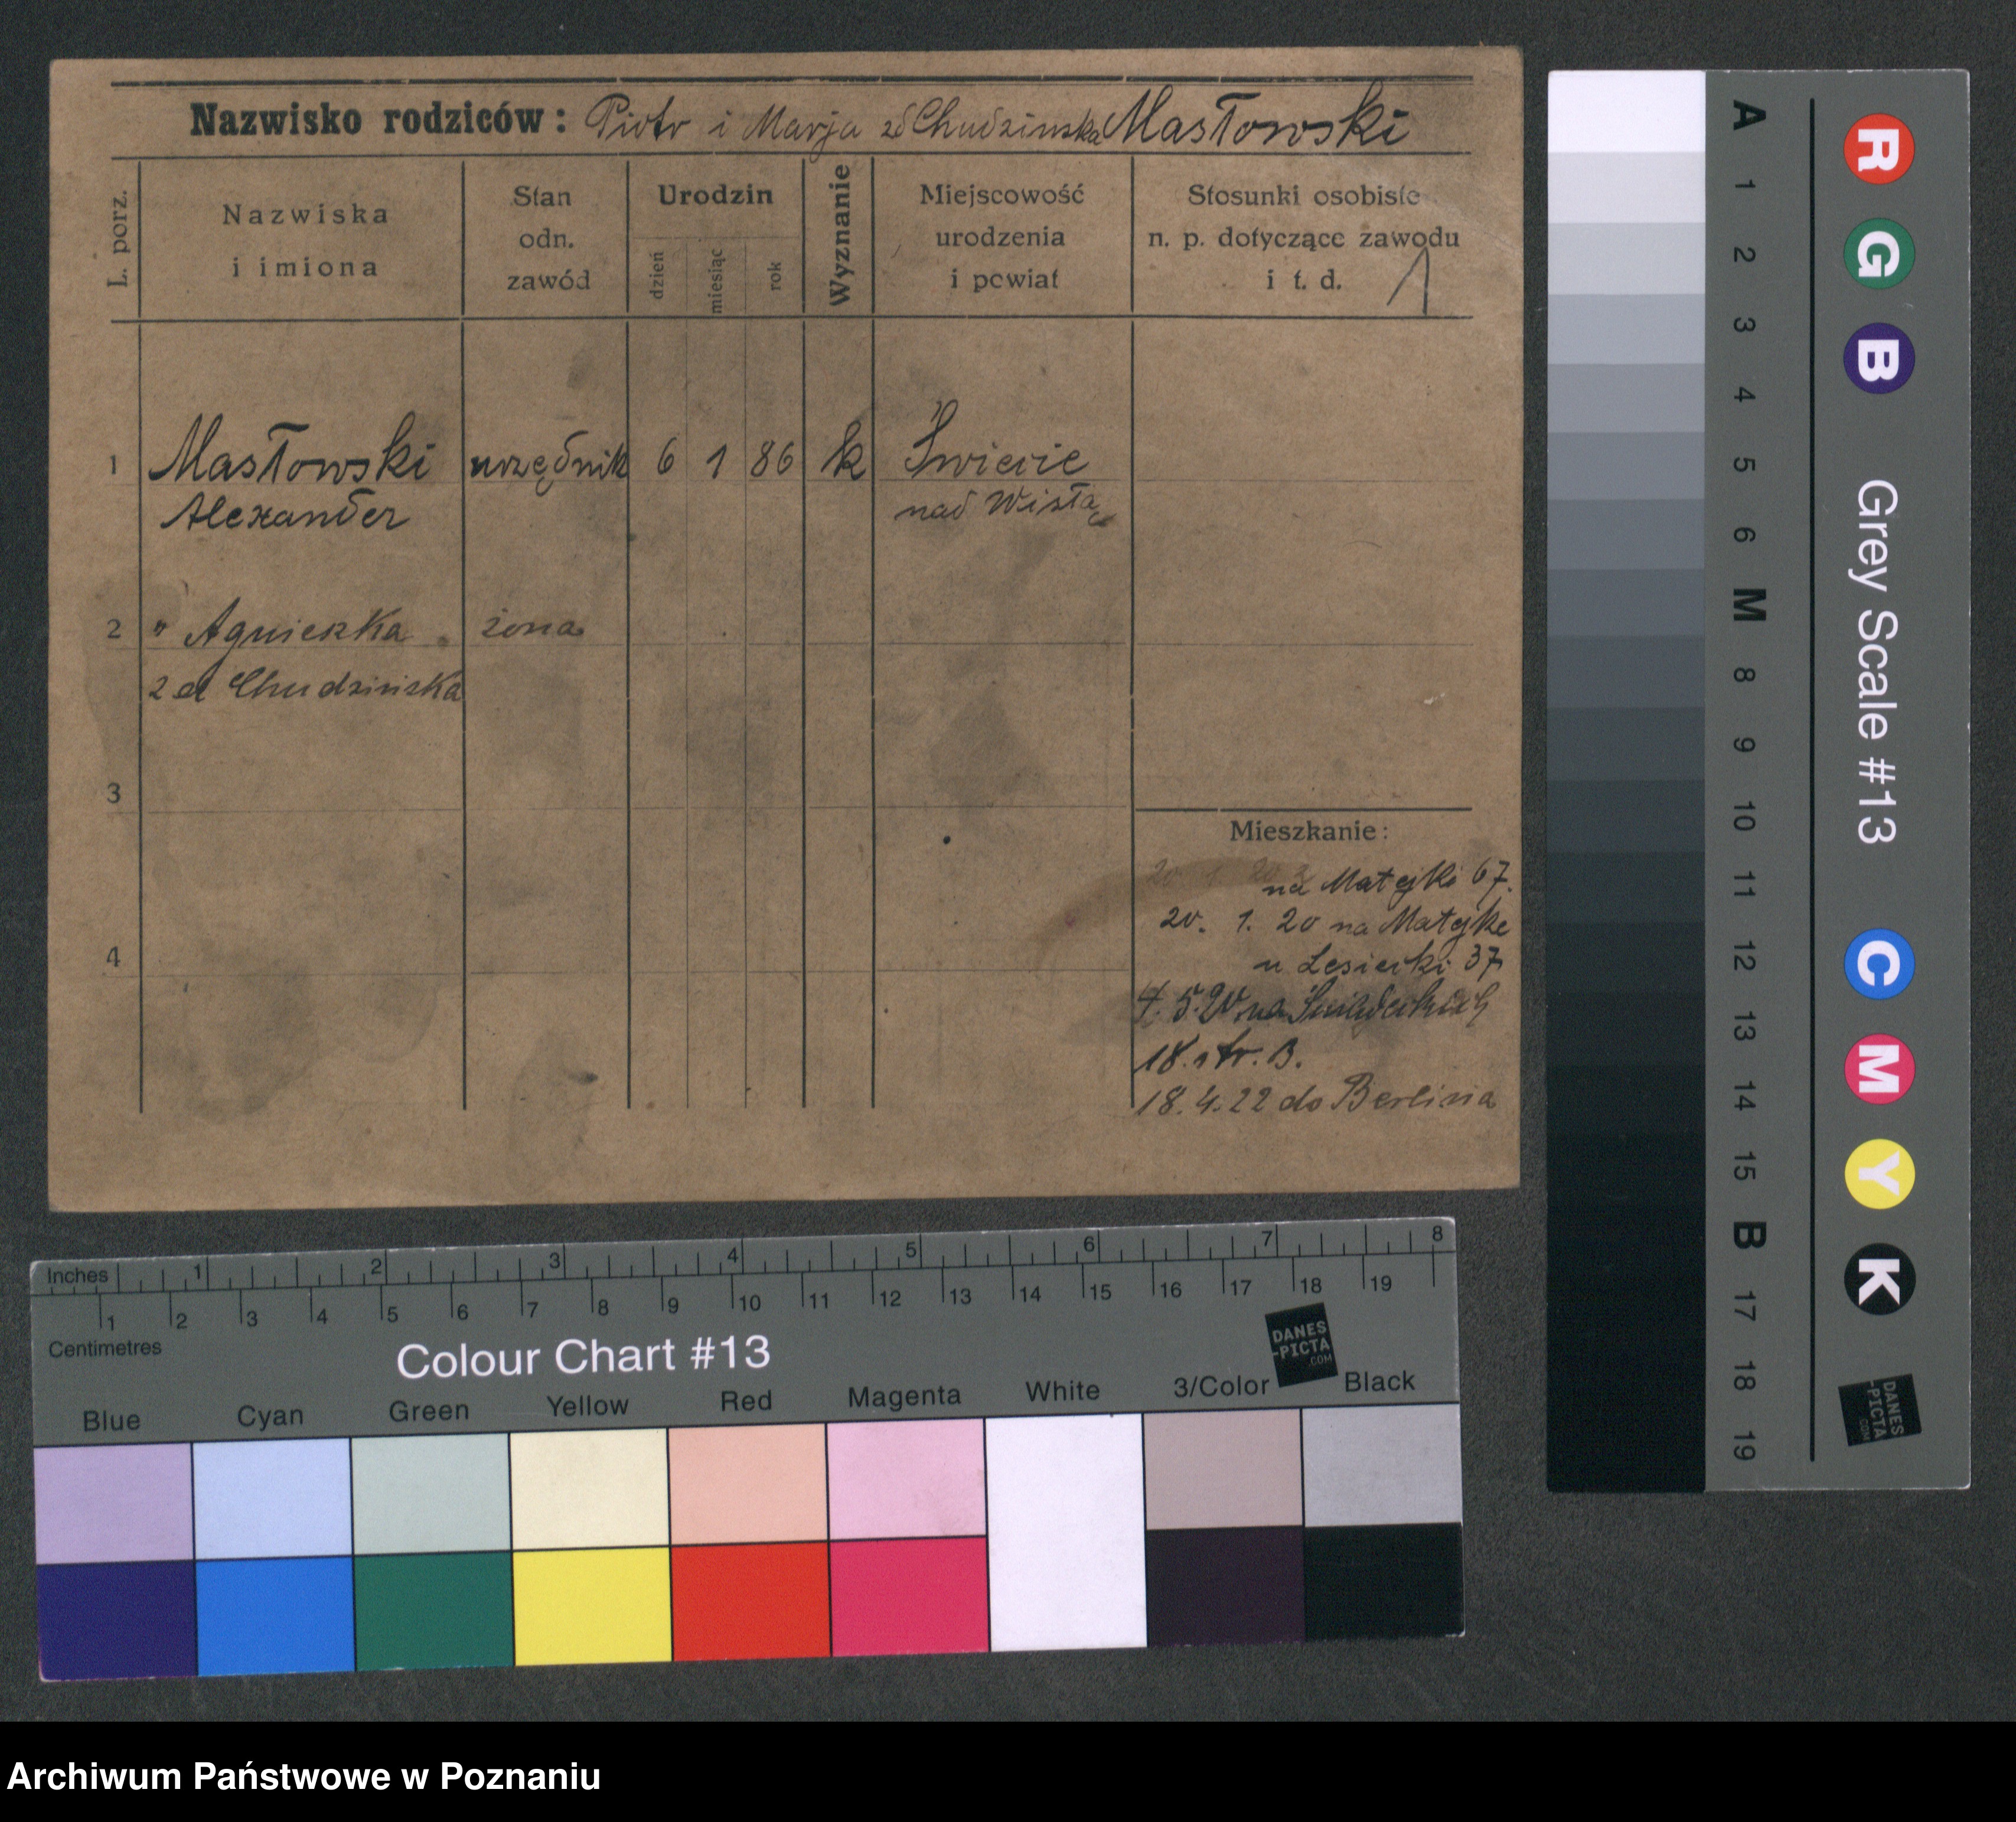 Nazwisko rodziców: Piotr i Marja zd Chudzinska Masłowski
L. porz.
Nazwiska
i imiona
Stan
odn.
zawód
Urodzin
dzień
miesiąc
rok
Wyznanie
Miejscowość
urodzenia
i powiat
Stosunki osobiste
n. p. dotyczące zawodu
i t. d.
1
1 Masłowski urzędnik 6 1 86 k Świecie
Alexander nad Wisłą
2 " Agnieszka żona
zd Chudzińska
3
Mieszkanie:
20 1 20
na Matejki 67.
20. 1. 20 na Matejke
u Lesiecki 37
4
4. 5. 20 na Śniadeckich
18. ptr. B.
18. 4. 22 do Berlina
A 1 2 3 4 5 6 M 8 9 10 11 12 13 14 15 B 17 18 19
R G B
Grey Scale #13
C M Y K
DANES
-PICTA
.COM
Inches 1 2 3 4 5 6 7 8
1 2 3 4 5 6 7 8 9 10 11 12 13 14 15 16 17 18 19
Centimetres
Colour Chart #13
DANES
-PICTA
.COM
Blue Cyan Green Yellow Red Magenta White 3/Color Black
Archiwum Państwowe w Poznaniu